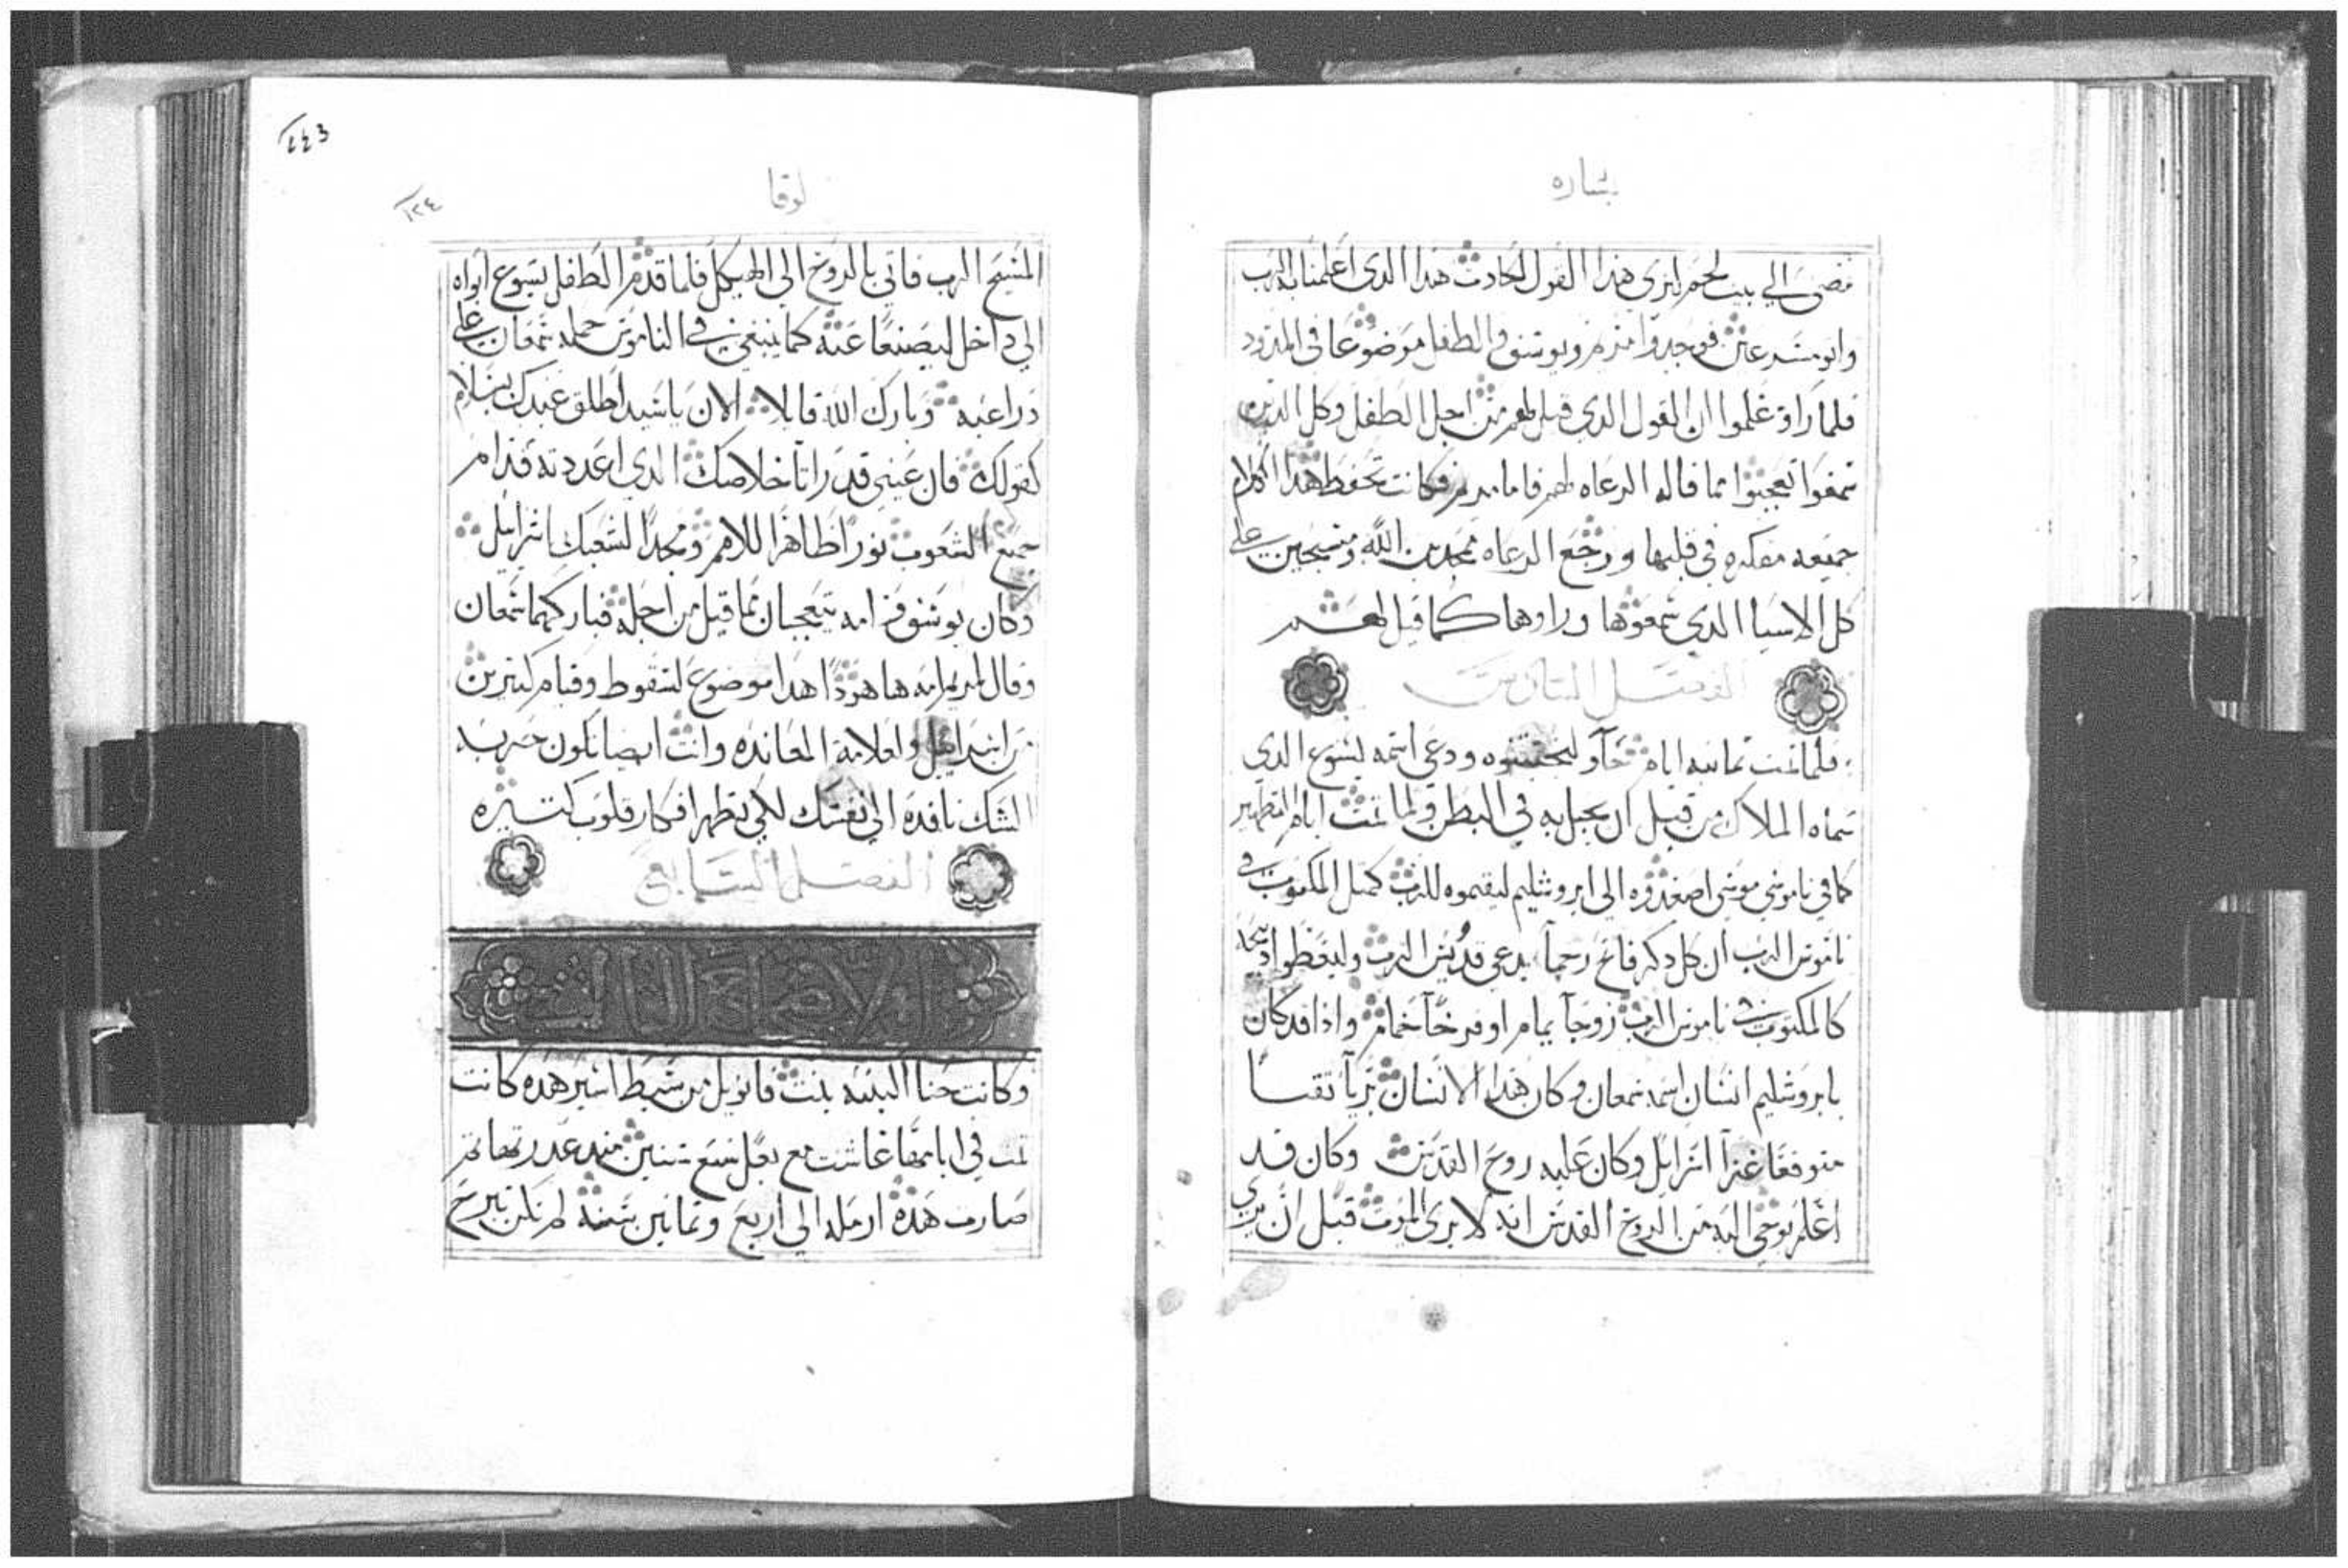 بشاره
نمضى الي بيت لحم لنرى هذا القول الحادث هذا الدى اعلمنا به الرب
واتو مسرعين فوجدوا مريم ويوسف والطفل موضوعا في المدود
فلما راوه علموا ان القول الدي قيل لهم من اجل الطفل وكل الدين
سمعوا تعجبوا مما قاله الرعاه لهم فاما مريم فكانت تحفظ هدا الكلام
جميعه مفكره في قلبها ورجع الرعاه ممجدين الله ومسبحين على
كل الاسيا الدي سمعوها وراوها كما قيل لهم
الفصل السادس
فلما تمت تمانيه ايام جآو ليختتنوه ودعي اسمه يسوع الدي
سماه الملاك من قبل ان يحبل به في البطن ولما تمت ايام التطهير
كما في ناموس موسى اصعدوه الى ايروشليم ليقيموه للرب كمتل المكتوب في
ناموس الرب ان كل دكر فاتح رحما يدعى قدوس الرب وليعطوا دبيحه
كالمكتوب في ناموس الرب زوجا يمام او فرخا حمام واذا قد كان
بايروشليم انسان اسمه سمعان وكان هذا الانسان بريا تقيا
متوقعا عزا اسرايل وكان عليه روح القدس وكان قد
اعلم بوحي اليه من الروح القدس انه لا يرى الموت قبل ان يرى
لوقا
١٢٤
المسيح الرب فاتي بالروح الى الهيكل فلما قدم الطفل يسوع ابواه
الي داخل ليصنعا عنه كما ينبغي في الناموس حمله سمعان على
دراعيه وبارك الله قايلا الان يا سيد اطلق عبدك بسلام
كقولك فان عيني قد راتا خلاصك الدي اعددته قدام
جميع الشعوب نورا ظاهرا للامم ومجدا لشعبك اسرايل
وكان يوسف وامه يتعجبان مما قيل من اجله فباركهما سمعان
وقال لمريم امه ها هودا هدا موضوع لسقوط وقيام كتيرين
من اسرايل ولعلامة المعانده وانت ايضا تكون حربه
الشك نافده الي نفسك لكي تظهر افكار قلوب كتيره
الفصل السابع
الاصحاح الثالث
وكانت حنا النبيه بنت فانويل من سبط اشير هده كانت
تمت في ايامها عاشت مع بعل سبع سنين
صارت هده ارمله الى اربع وتمانين سنه لم تكن تبرح